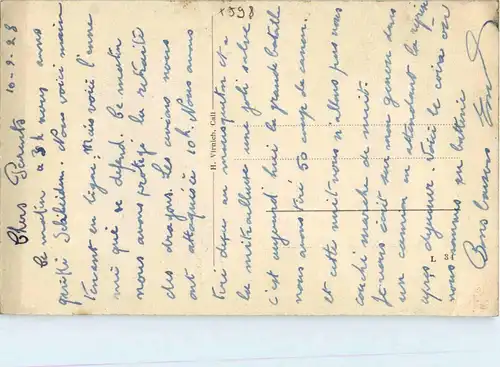 10-9-28
Chers Parents
Ce matin à 3h nous avons
quitté Schleiden. Nous voici main
tenant en ligne: Mais voici l'enne
mi qui se défend. Ce matin
nous avons protégé la retraite
des dragons. Les avions nous
ont attaqués à 10h. Nous avons
tiré deçu au mousqueton et à
la mitrailleuse une joli salve
c'est aujourd'hui la grande bataille
nous avons tiré 50 coup de canon.
et cette nuit nous n'allons pas nous
couché marche de nuit.
Je vous écrit sur mon genou dans
un camion en attendant la
après déjeuner. Voici le
nous sommes en batterie
Bons baisers
H. Virnich, Call.
L